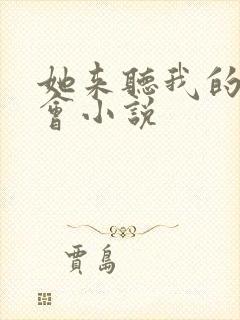 她来聽我的
會小説
賈島